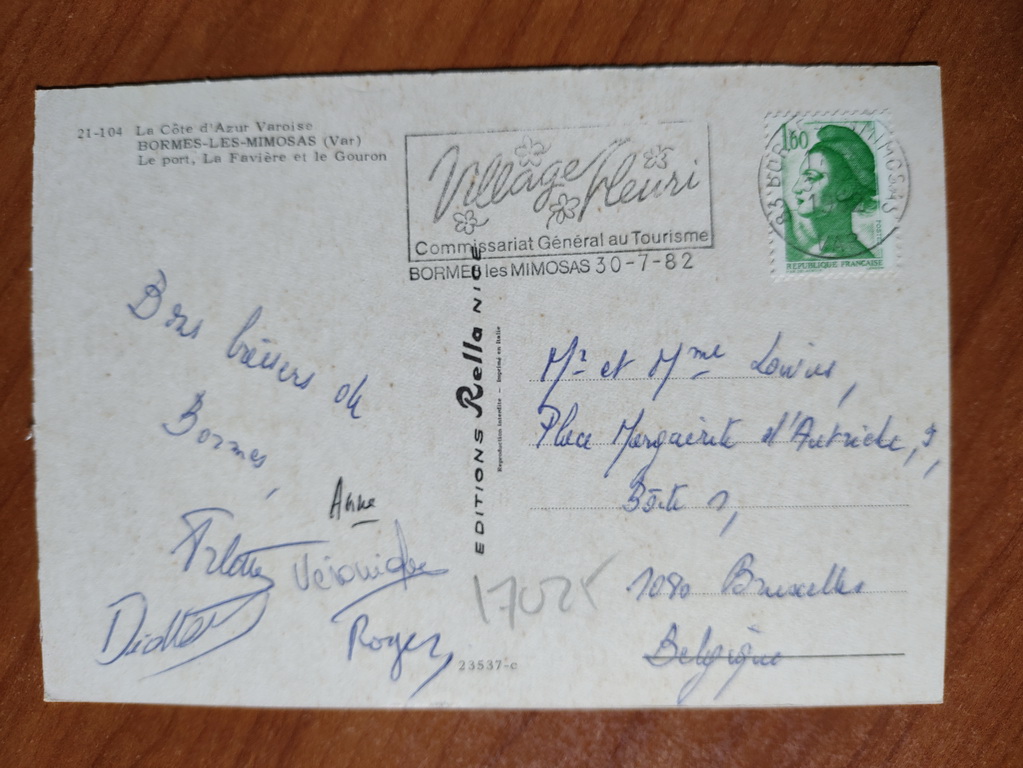 21-104 La Côte d'Azur Varoise
BORMES-LES-MIMOSAS (Var)
Le port, La Favière et le Gouron
Village fleuri
Commissariat Général au Tourisme
BORMES les MIMOSAS 30-7-82
1,60
POSTES
REPUBLIQUE FRANÇAISE
Bons baisers de
Bormes,
Anne
Véronique
Didier
Roger
EDITIONS Rella NICE
Reproduction interdite — Imprimé en Italie
Mr et Mme
Place Marguerite d'Autriche,
Boîte 1,
1080 Bruxelles
Belgique
17025
23537-c